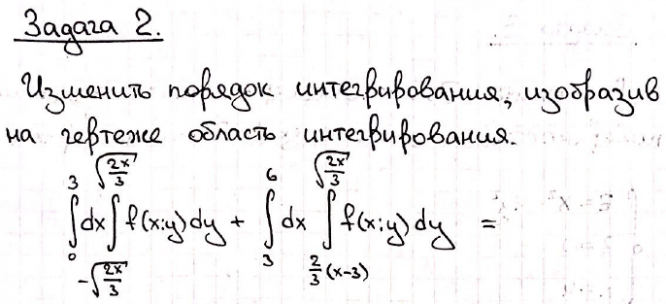 Задача 2.
Изменить порядок интегрирования, изобразив
на чертеже область интегрирования.
∫₀³ dx ∫_{-√(2x/3)}^{√(2x/3)} f(x;y)dy + ∫₃⁶ dx ∫_{2/3(x-3)}^{√(2x/3)} f(x;y)dy =